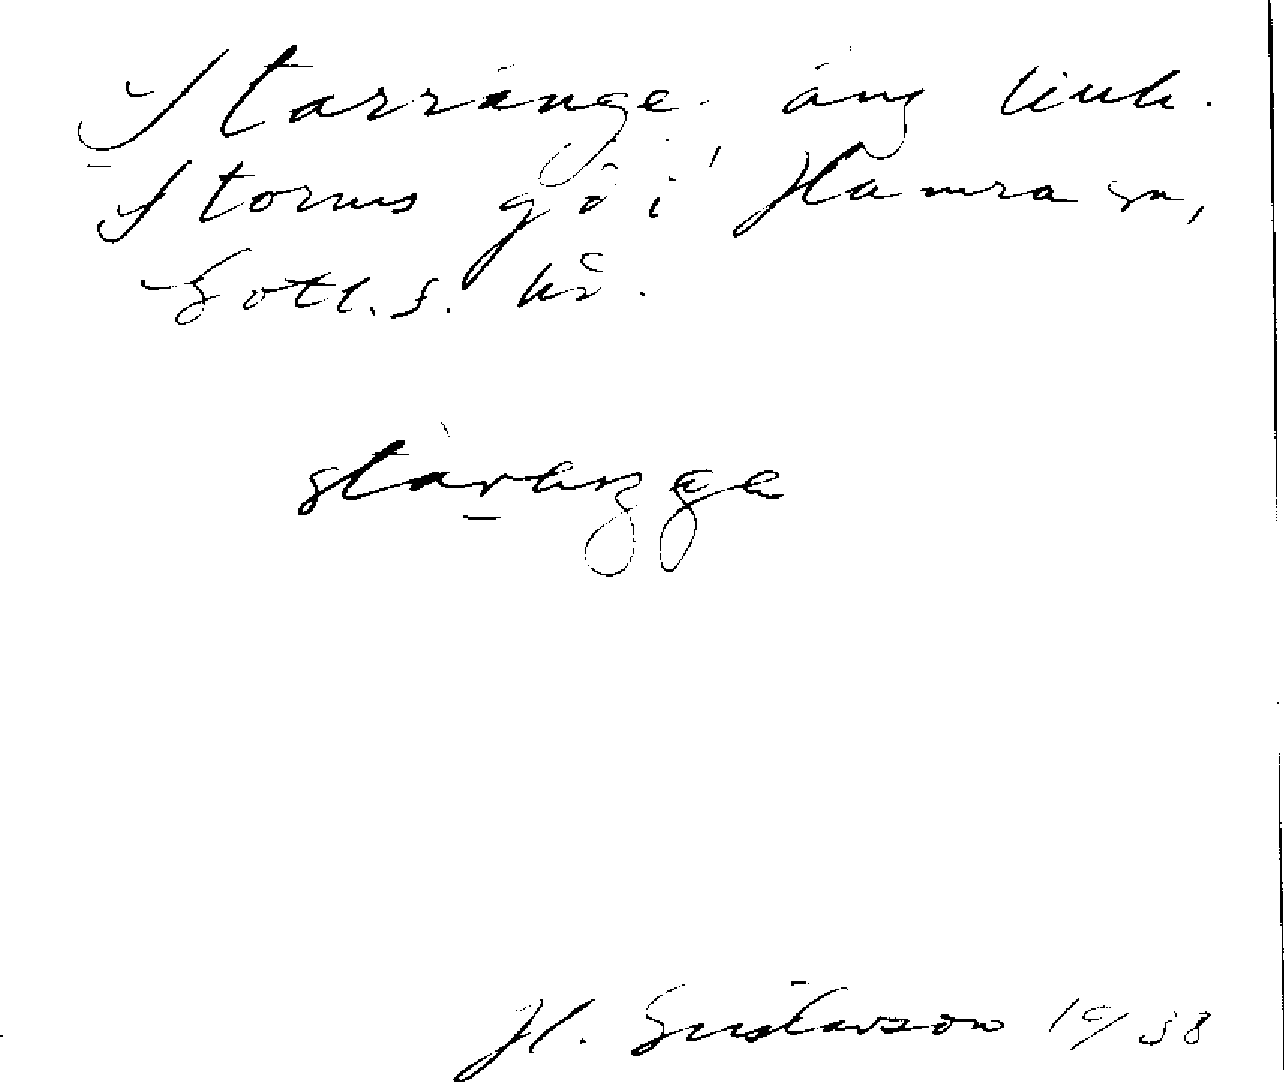 Starränge, äng tillh.
Storms gd i Hamra sn,
Gotl. s. hd.
starenge
H. Gustavson 1938